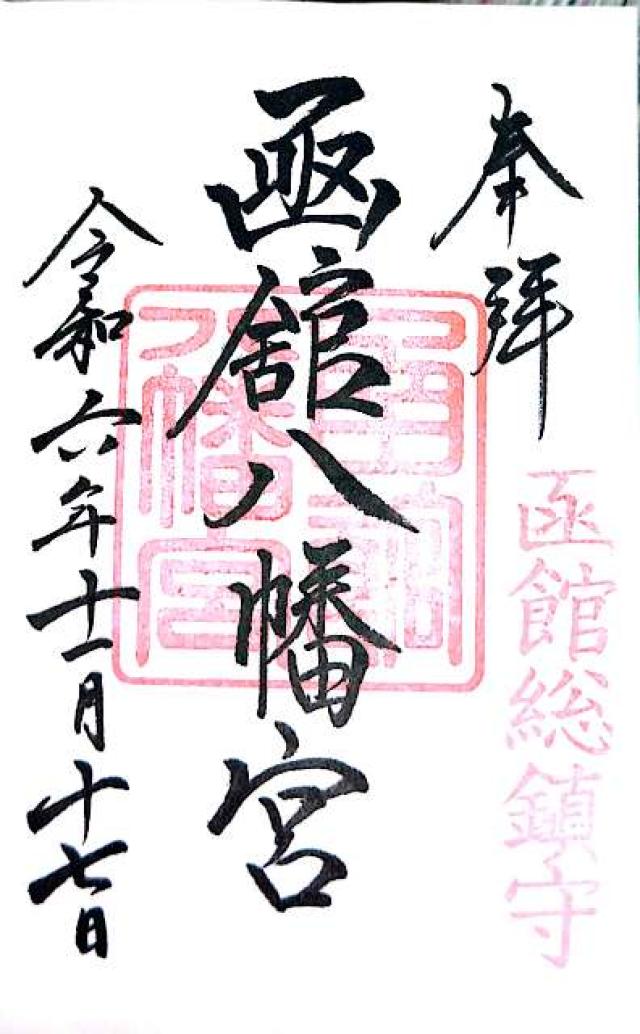 奉拝
函館総鎮守
凾舘八幡宮
八幡宮
令和六年十一月十七日